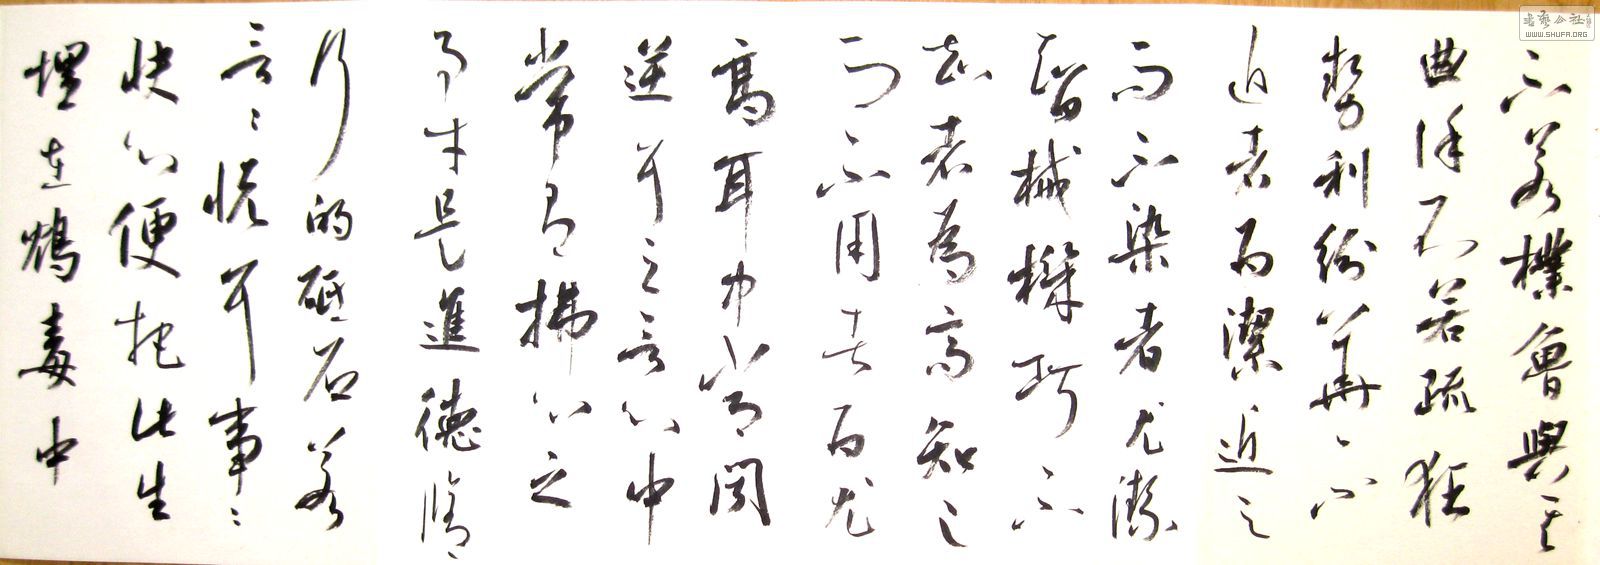 不若樸魯與其
曲謹不若疏狂
勢利紛華不
近者为潔近之
而不染者尤潔
智械機巧不
知者為高知之
而不用者为尤
高耳中常闻
逆耳之言心中
常有拂心之
事才是進德修
行的砥石若
言々悦耳事々
快心便把此生
埋在鴆毒中
書藝公社
WWW.SHUFA.ORG